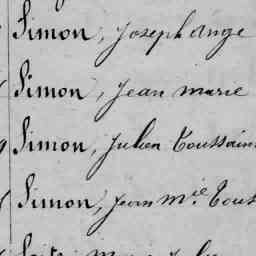 Simon, Joseph Ange
Simon, Jean Marie
Simon, Julien Toussain
Simon, Jean Mie Tous